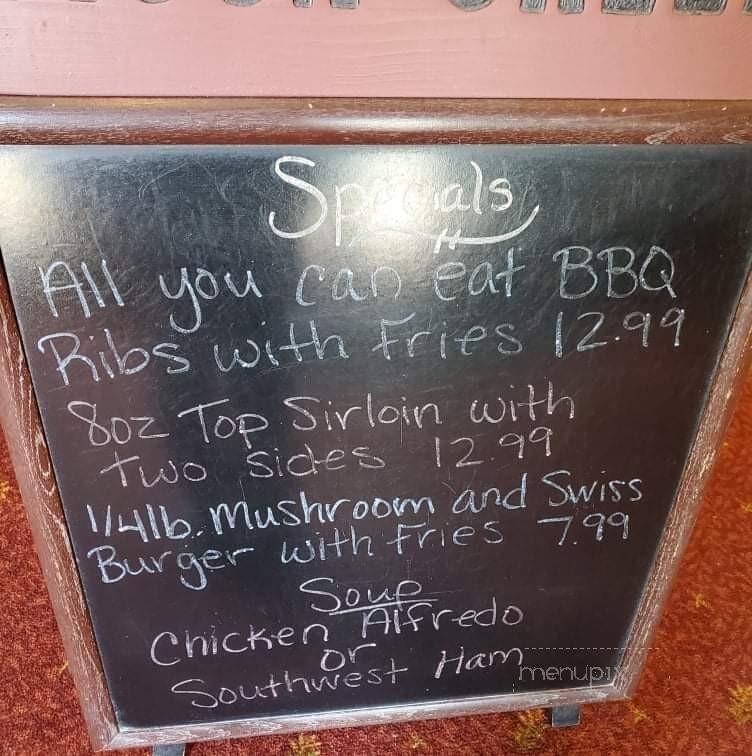 Specials
All you can eat BBQ
Ribs with Fries 12.99
8oz Top Sirloin with
two sides 12.99
1/4lb. Mushroom and Swiss
Burger with Fries 7.99
Soup
Chicken Alfredo
or
Southwest Ham
menupix